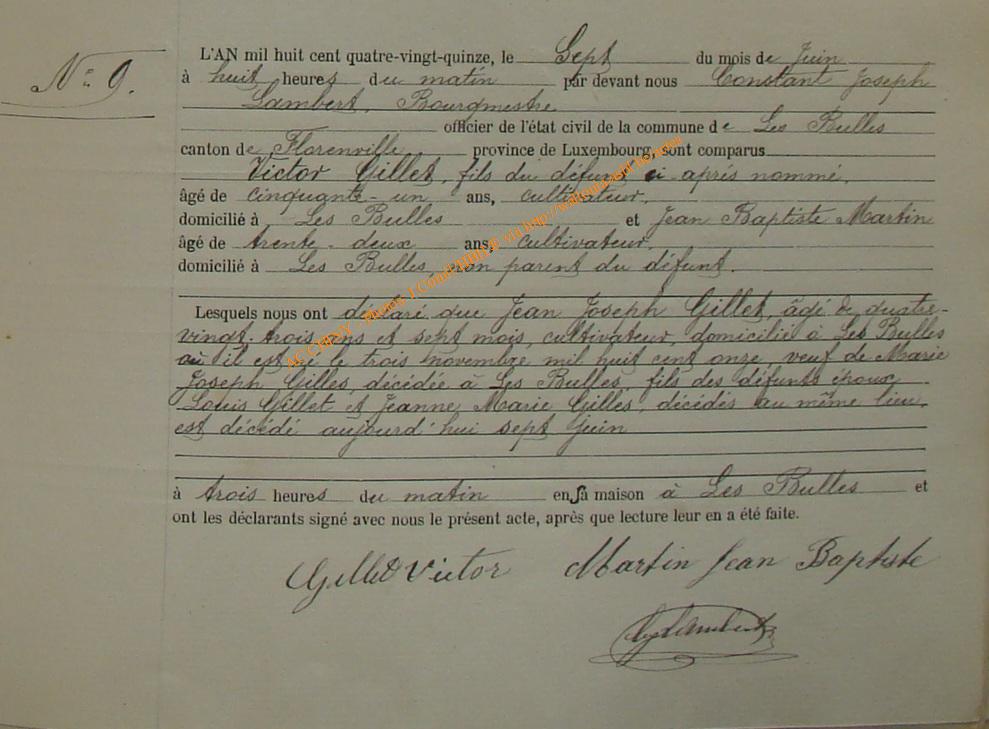 N° 9.
L'AN mil huit cent quatre-vingt-quinze, le Sept du mois de Juin
à huit heures du matin par devant nous Constant Joseph
Lambert, Bourgmestre
officier de l'état civil de la commune de Les Bulles
canton de Florenville, province de Luxembourg, sont comparus
Victor Gillet, fils du défunt ci-après nommé,
âgé de cinquante-un ans, cultivateur,
domicilié à Les Bulles et Jean Baptiste Martin
âgé de trente-deux ans, cultivateur,
domicilié à Les Bulles, non parent du défunt.
Lesquels nous ont déclaré que Jean Joseph Gillet, âgé de quatre-
vingt-trois ans et sept mois, cultivateur, domicilié à Les Bulles
où il est né le trois novembre mil huit cent onze, veuf de Marie
Joseph Gilles, décédée à Les Bulles, fils des défunts époux
Louis Gillet et Jeanne Marie Gilles, décédés au même lieu,
est décédé aujourd'hui sept juin
à trois heures du matin en sa maison à Les Bulles et
ont les déclarants signé avec nous le présent acte, après que lecture leur en a été faite.
Gillet Victor Martin Jean Baptiste
Lambert